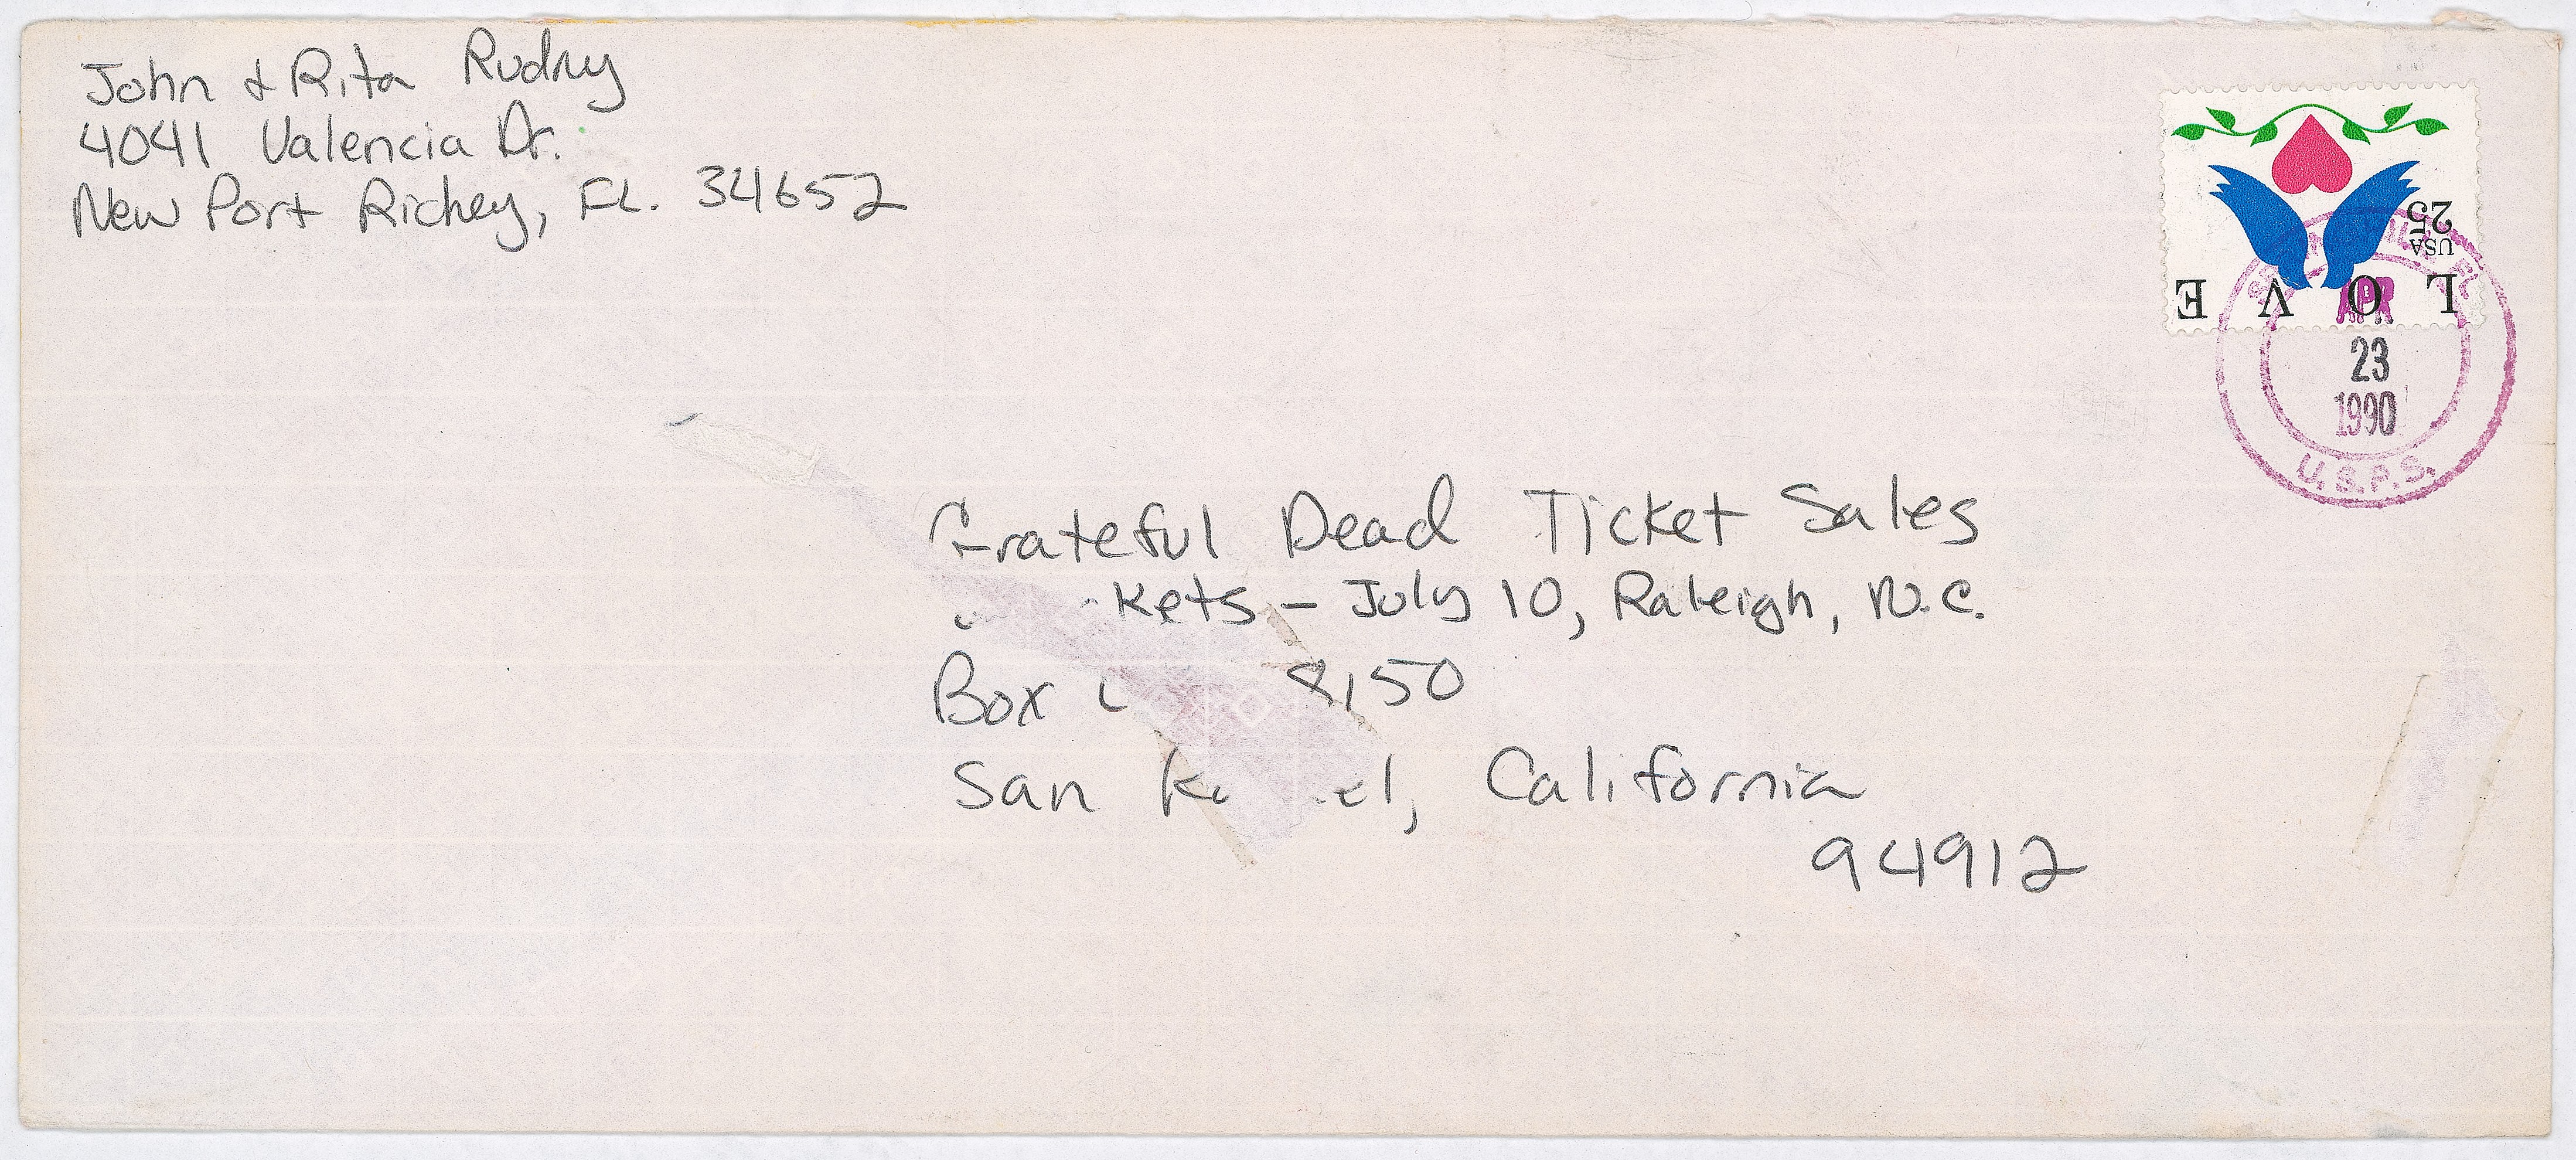 John & Rita Rudny
4041 Valencia Dr.
New Port Richey, FL. 34652
LOVE
USA
25
APR
23
1990
U.S.P.S.
Grateful Dead Ticket Sales
kets - July 10, Raleigh, N.C.
Box 150
San el, California
94912